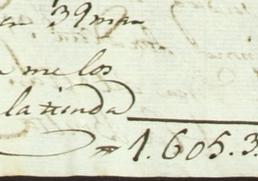 en 39 mrs
me los
la tienda
= 1.605.3